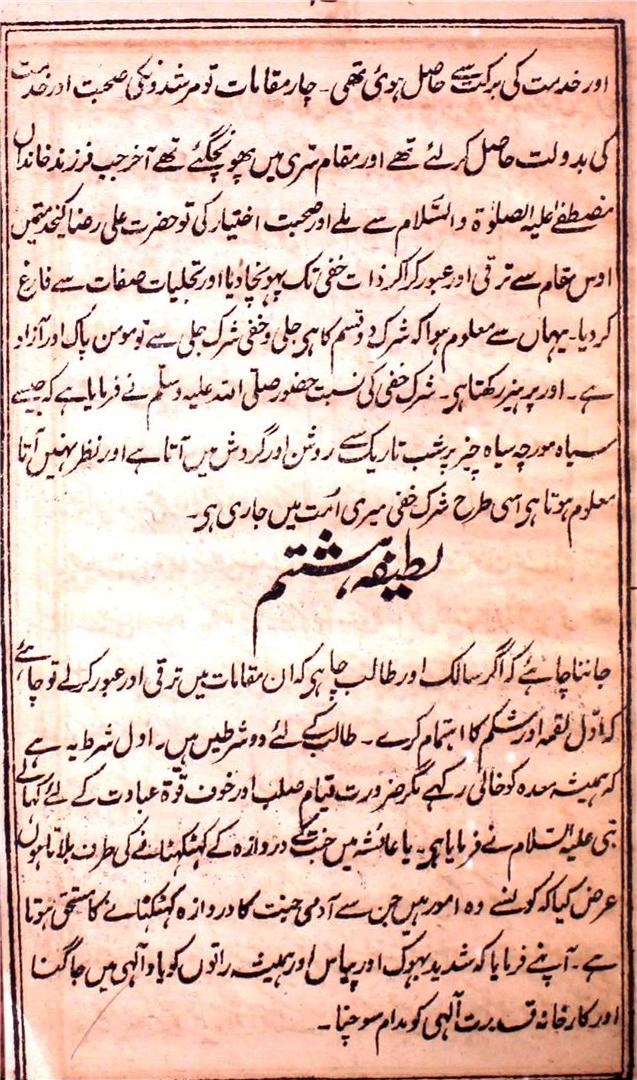 اور خدمت کی برکت سے حاصل ہوئی تھی۔ چار مقامات تو مرشدونکی صحبت اور خدمت
کی بدولت حاصل کرلئے تھے اور مقام سری میں پھونچگئے تھے آخر جب فرزند خاندان
مصطفےٰ علیہ الصلوٰۃ والسّلام سے ملے اور صحبت اختیار کی تو حضرت علی رضا کیخدمتمیں
اوس مقام سے ترقی اور عبور کرا کر ذات خفی تک پہونچا دیا اور تجلیات صفات سے فارغ
کر دیا۔ یہاں سے معلوم ہوا کہ شرک دو قسم کا ہی جلی و خفی شرک جلی سے تو مومن پاک اور آزاد
ہے۔ اور پرہیز رکھتا ہی۔ شرک خفی کی نسبت حضور صلی اللہ علیہ وسلم نے فرمایا ہے کہ جیسے
سیاہ مورچہ سیاہ چیز پر شب تاریک سے روشن اور گردش میں آتا ہے اور نظر نہیں آتا
معلوم ہوتا ہی اسی طرح شرک خفی میری امّت میں جاری ہی۔
لطیفہ ہشتم
جاننا چاہئے کہ اگر سالک اور طالب چاہی کہ ان مقامات میں ترقی اور عبور کرلے تو چاہئے
کہ اوّل لقمہ اور شکم کا اہتمام کرے۔ طالب کے لئے دو شرطیں ہیں۔ اول شرط یہ ہے
کہ ہمیشہ معدہ کو خالی رکہے مگر ضرورت قیام صلب اور خوف قوّۃ عبادت کے لئے کہالے
نبی علیہ السّلام نے فرمایا ہی۔ یا عائشہ میں جنت کے دروازہ کے کہٹکہٹانے کی طرف بلاتا ہوں
عرض کیا کہ کونسے وہ امور ہیں جن سے آدمی جنت کا دروازہ کہٹکہٹانے کا مستحق ہوتا
ہے۔ آپنے فرمایا کہ شدید بہوک اور پیاس اور ہمیشہ راتوں کو یاد آلہی میں جاگنا
اور کارخانہ قدرت آلہی کو مدام سوچنا۔